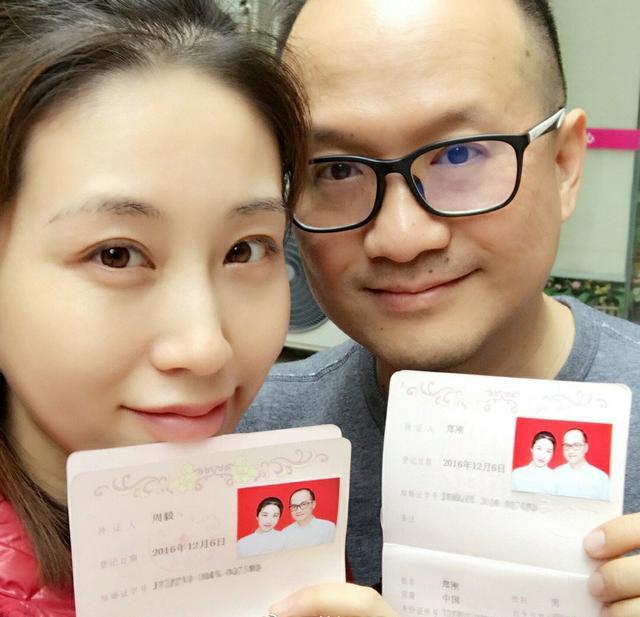 心
持证人 周毅
登记日期 2016年12月6日
结婚证字号
持证人 郑刚
登记日期 2016年12月6日
结婚证字号
备注
姓名 郑刚
国籍 中国 性别 男